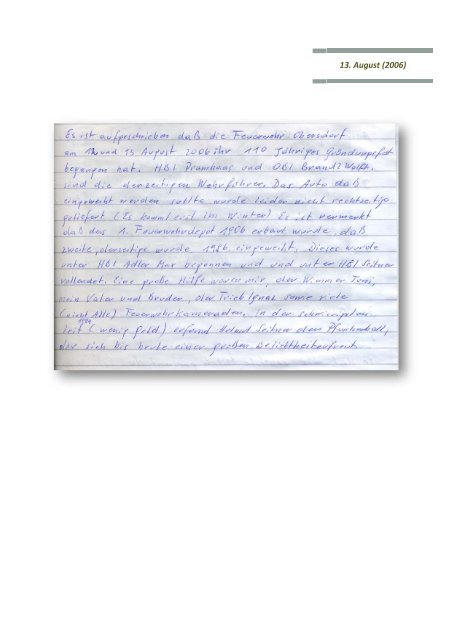 13. August (2006)
Es ist aufgeschrieben daß die Feuerwehr Obersdorf
am 12. und 13 August 2006 ihr 110 Jähriges Gründungsfest
begangen hat. HBI Pramhaas und OBI Brandz Wolfh.
sind die derzeitigen Wehrführer. Das Auto daß
eingeweiht werden sollte wurde leider nicht rechtzeitig
geliefert (Es kommt erst im Winter) Es ist vermerkt
daß das 1. Feuerwehrdepot 1906 erbaut wurde, daß
zweite, derzeitige wurde 1986 eingeweiht. Dieses wurde
unter HBI Adler Max begonnen und und unter HBI Seitner
vollendet. Eine große Hilfe waren mir, der Wimmer Toni,
mein Vater und Bruder, der Trieb Ignaz sowie viele
(nicht Alle) Feuerwehrkameraden. In der schwierigsten
Zeit (wenig Geld) erfand Helmut Seitner den
der sich bis heute einer großen Beliebtheit erfreut.